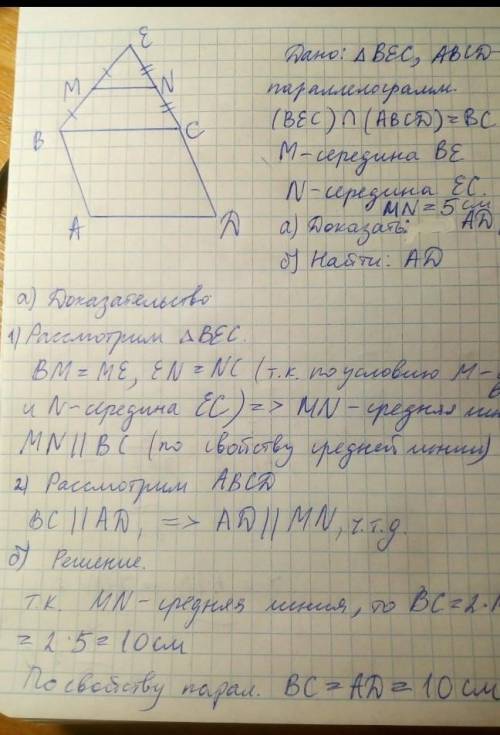 E
M
N
B
C
A
D
Дано: △BEC, ABCD-
параллелограмм.
(BEC)∩(ABCD)=BC
M-середина BE
N-середина EC.
MN=5 см
а) Доказать: AD
б) Найти: AD
а) Доказательство
1) Рассмотрим △BEC.
BM=ME, EN=NC (т.к. по условию M-
и N-середина EC) => MN-средняя
MN||BC (по свойству средней линии)
2) Рассмотрим ABCD
BC||AD, => AD||MN, ч.т.д.
б) Решение.
т.к. MN-средняя линия, то BC=2·
=2·5=10см
По свойству парал. BC=AD=10см